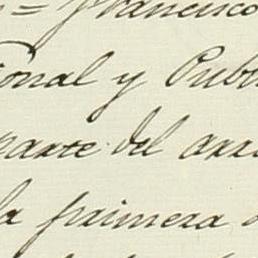 = Francisco
ional y Publi
parte del arri
la primera d